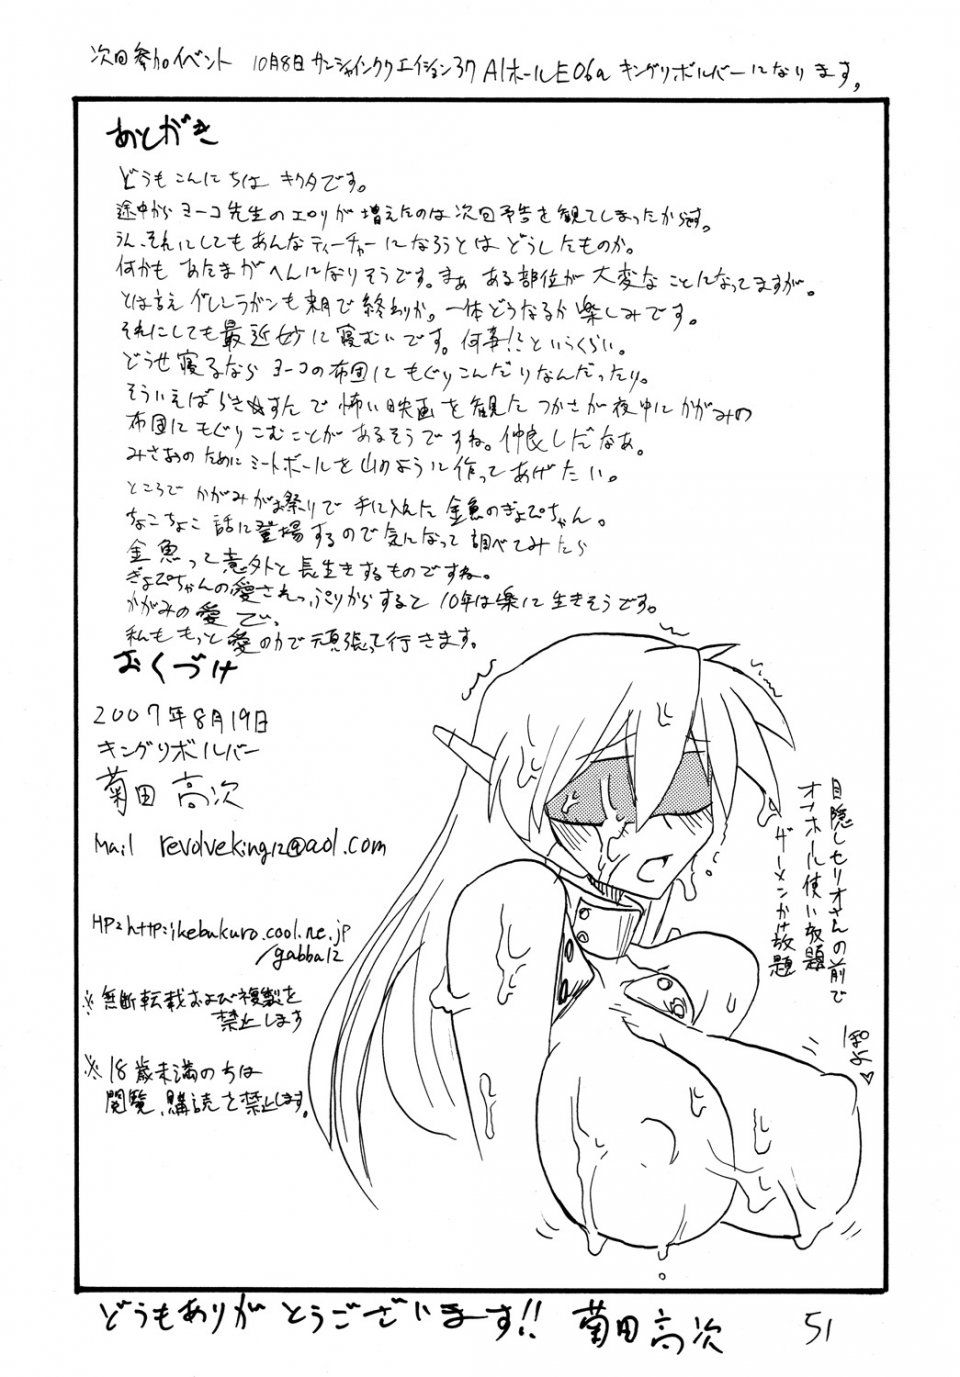 次回参加イベント 10月8日サンシャインクリエイション37 A1ホールE06a キングリボルバーになります。
あとがき
どうもこんにちは キクタです。
途中から ヨーコ先生のエロリが増えたのは次回予告を観てしまったからです。
うん、それにしてもあんなティーチャーになろうとは どうしたものか。
何かも あたまがへんになりそうです。まぁ ある部位が大変なことになってますが。
とは言え グレンラガンも来月で終わりか。一体どうなるか楽しみです。
それにしても最近妙に寝むいです。何事!?というくらい。
どうせ寝るなら ヨーコの布団にもぐりこんだりなんだったり。
そういえばらき☆すたで 怖い映画を観た つかさが夜中にかがみの
布団にもぐりこむことがあるそうですね。仲良しだなぁ。
みさおのためにミートボールを山のように作ってあげたい。
ところで かがみがお祭りで手に入れた 金魚のぎょぴちゃん。
ちょこちょこ 話に登場するので気になって調べてみたら
金魚って意外と長生きするものですね。
ぎょぴちゃんの愛されっぷりからすると 10年は楽に生きそうです。
かがみの愛で。
私ももっと愛の力で頑張って行きます。
おくづけ
2007年8月19日
キングリボルバー
菊田 高次
Mail revolveking12@aol.com
HP=http://ikebukuro.cool.ne.jp
/gabba12
※無断転載および複製を
禁止します
※18歳未満のちは
閲覧、購読を禁止します。
目隠しセリオさんの前で
オナホール使い放題
ザーメンかけ放題
ぽよ♡
どうもありがとうございます!! 菊田高次
51